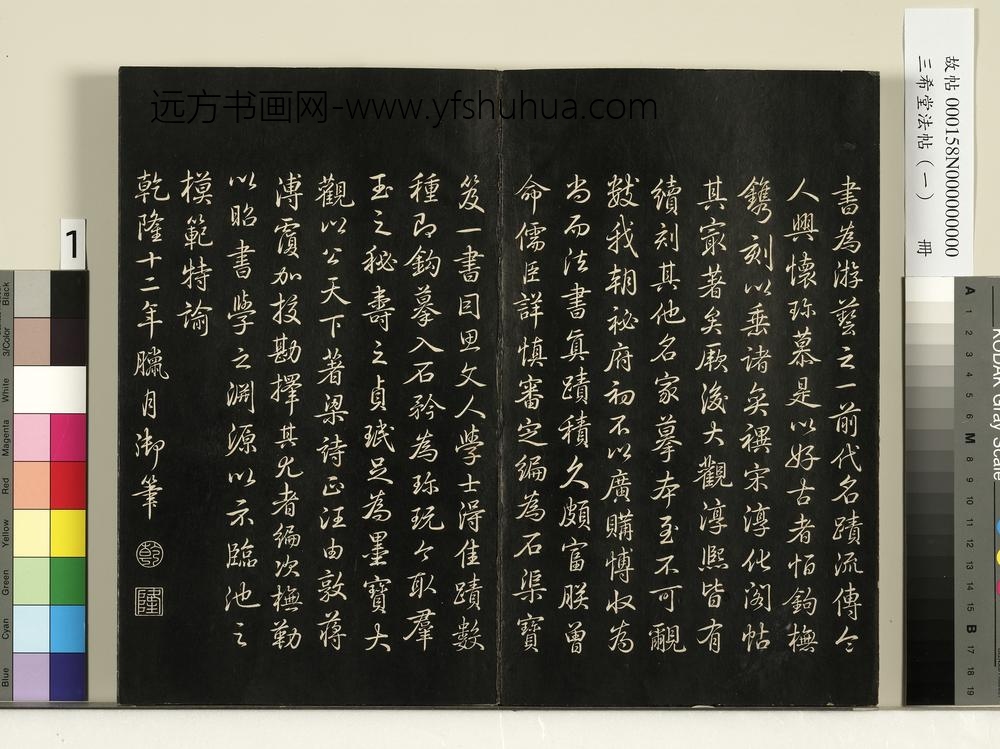 远方书画网-www.yfshuhua.com
故帖 000158N000000000
三希堂法帖（一） 冊
書為游藝之一前代名蹟流傳令
人興懷珍慕是以好古者怕鈎橅
鐫刻以垂諸奕禩宋淳化閣帖
其冣著矣厥後大觀淳熙皆有
續刻其他名家摹本至不可覼
數我朝祕府初不以廣購博收為
尚而法書真蹟積久頗富朕曾
命儒臣詳慎審定編為石渠寶
笈一書因思文人學士得佳蹟數
種即鈎摹入石矜為珍玩今取羣
玉之秘壽之貞珉足為墨寶大
觀以公天下著梁詩正汪由敦蔣
溥覆加挍勘擇其尤者編次橅勒
以昭書學之淵源以示臨池之
模範特諭
乾隆十二年臘月御筆
乾
隆
1
Black
3/Color
White
Magenta
Red
Yellow
Green
Cyan
Blue
KODAK Gray Scale
A 1 2 3 4 5 6 M 8 9 10 11 12 13 14 15 B 17 18 19